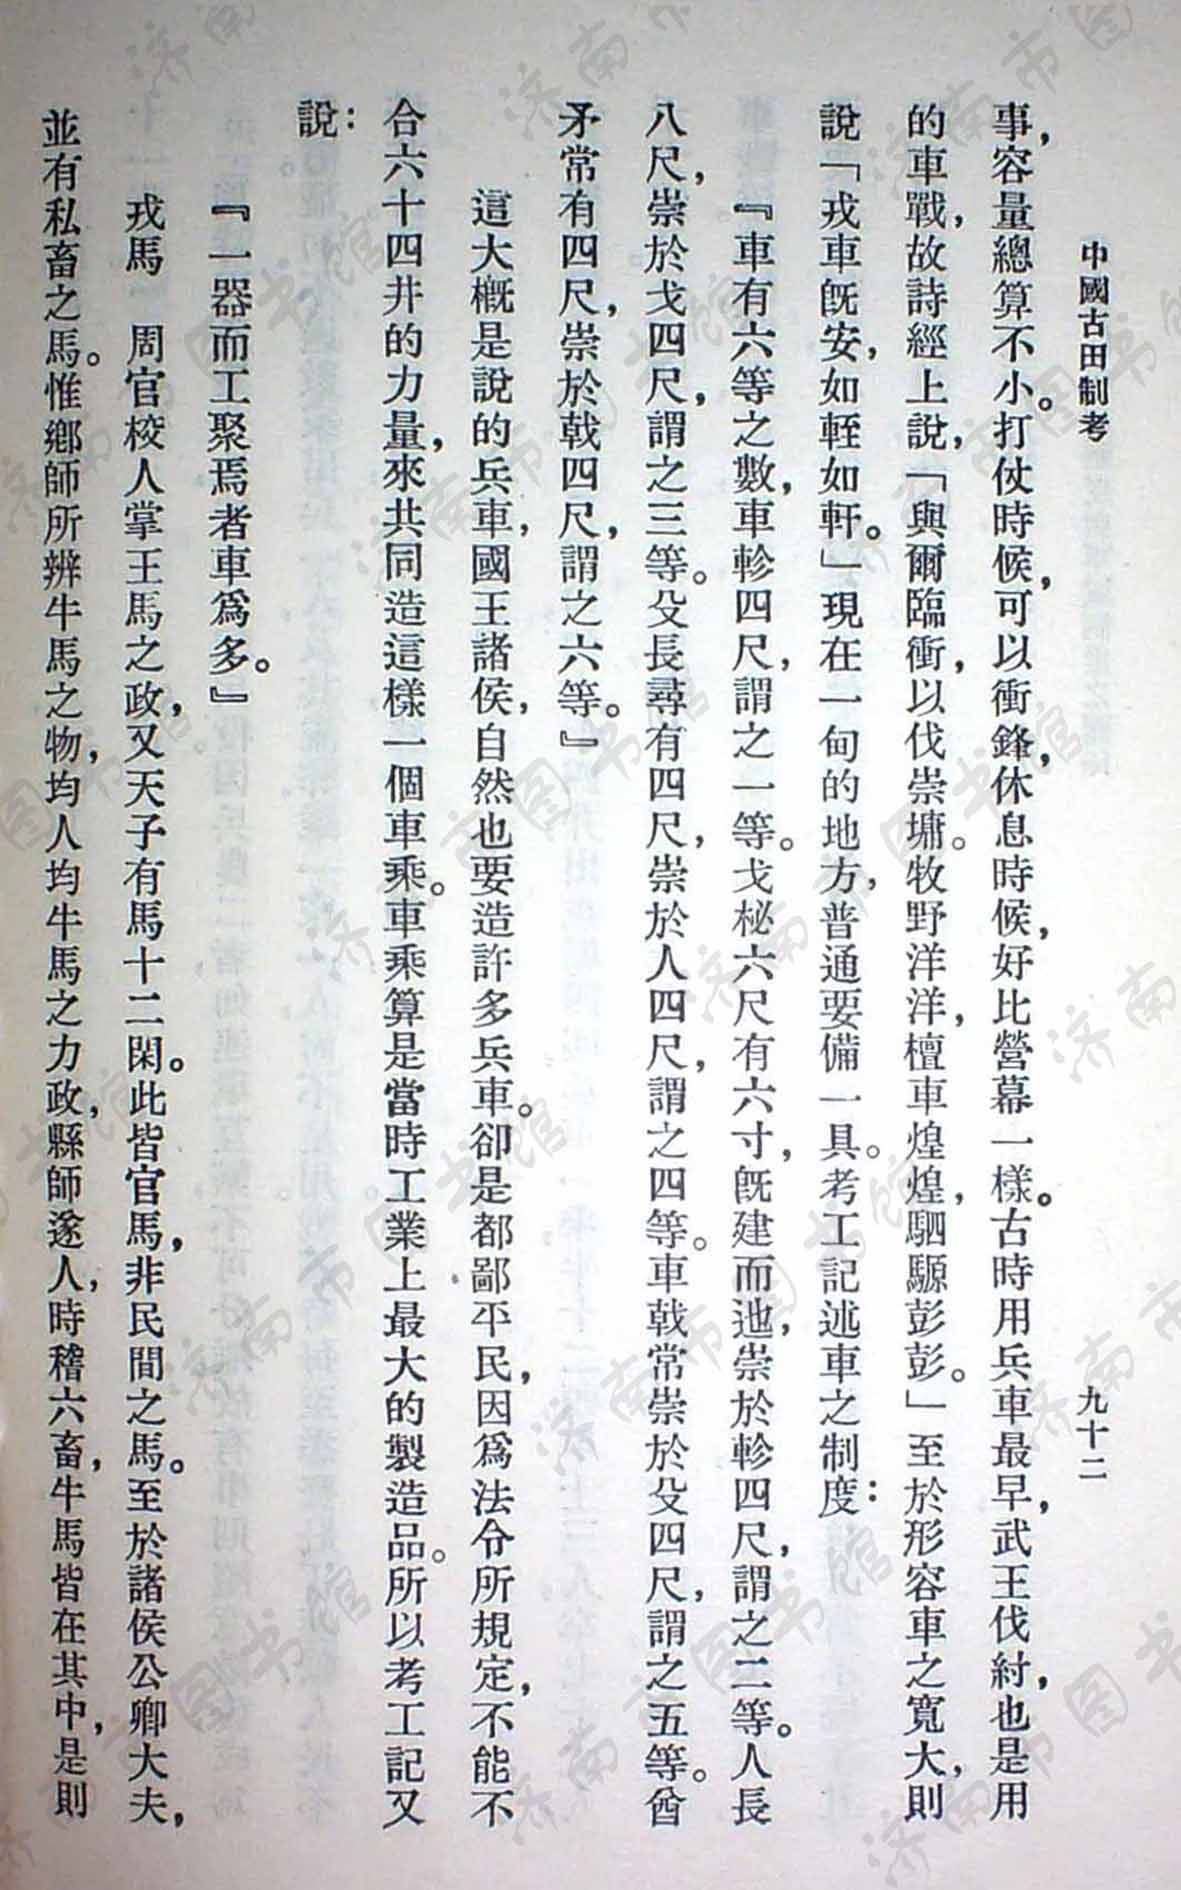 中國古田制考
九十二
事，容量總算不小。打仗時候，可以衝鋒，休息時候，好比營幕一樣。古時用兵車最早，武王伐紂，也是用
的車戰，故詩經上說，「與爾臨衝，以伐崇墉。牧野洋洋，檀車煌煌，駟騵彭彭。」至於形容車之寬大，則
說「戎車旣安，如輊如軒。」現在一甸的地方，普通要備一具。考工記述車之制度：
『車有六等之數，車軫四尺，謂之一等。戈柲六尺有六寸，旣建而迆，崇於軫四尺，謂之二等。人長
八尺，崇於戈四尺，謂之三等。殳長尋有四尺，崇於人四尺，謂之四等。車戟常崇於殳四尺，謂之五等。酋
矛常有四尺，崇於戟四尺，謂之六等。』
這大概是說的兵車，國王諸侯，自然也要造許多兵車。卻是都鄙平民，因爲法令所規定，不能不
合六十四井的力量，來共同造這樣一個車乘。車乘算是當時工業上最大的製造品。所以考工記又
說：
『一器而工聚焉者車爲多。』
戎馬　周官校人掌王馬之政，又天子有馬十二閑。此皆官馬，非民間之馬。至於諸侯公卿大夫，
並有私畜之馬。惟鄉師所辨牛馬之物，均人均牛馬之力政，縣師遂人，時稽六畜，牛馬皆在其中，是則
济南市图书馆